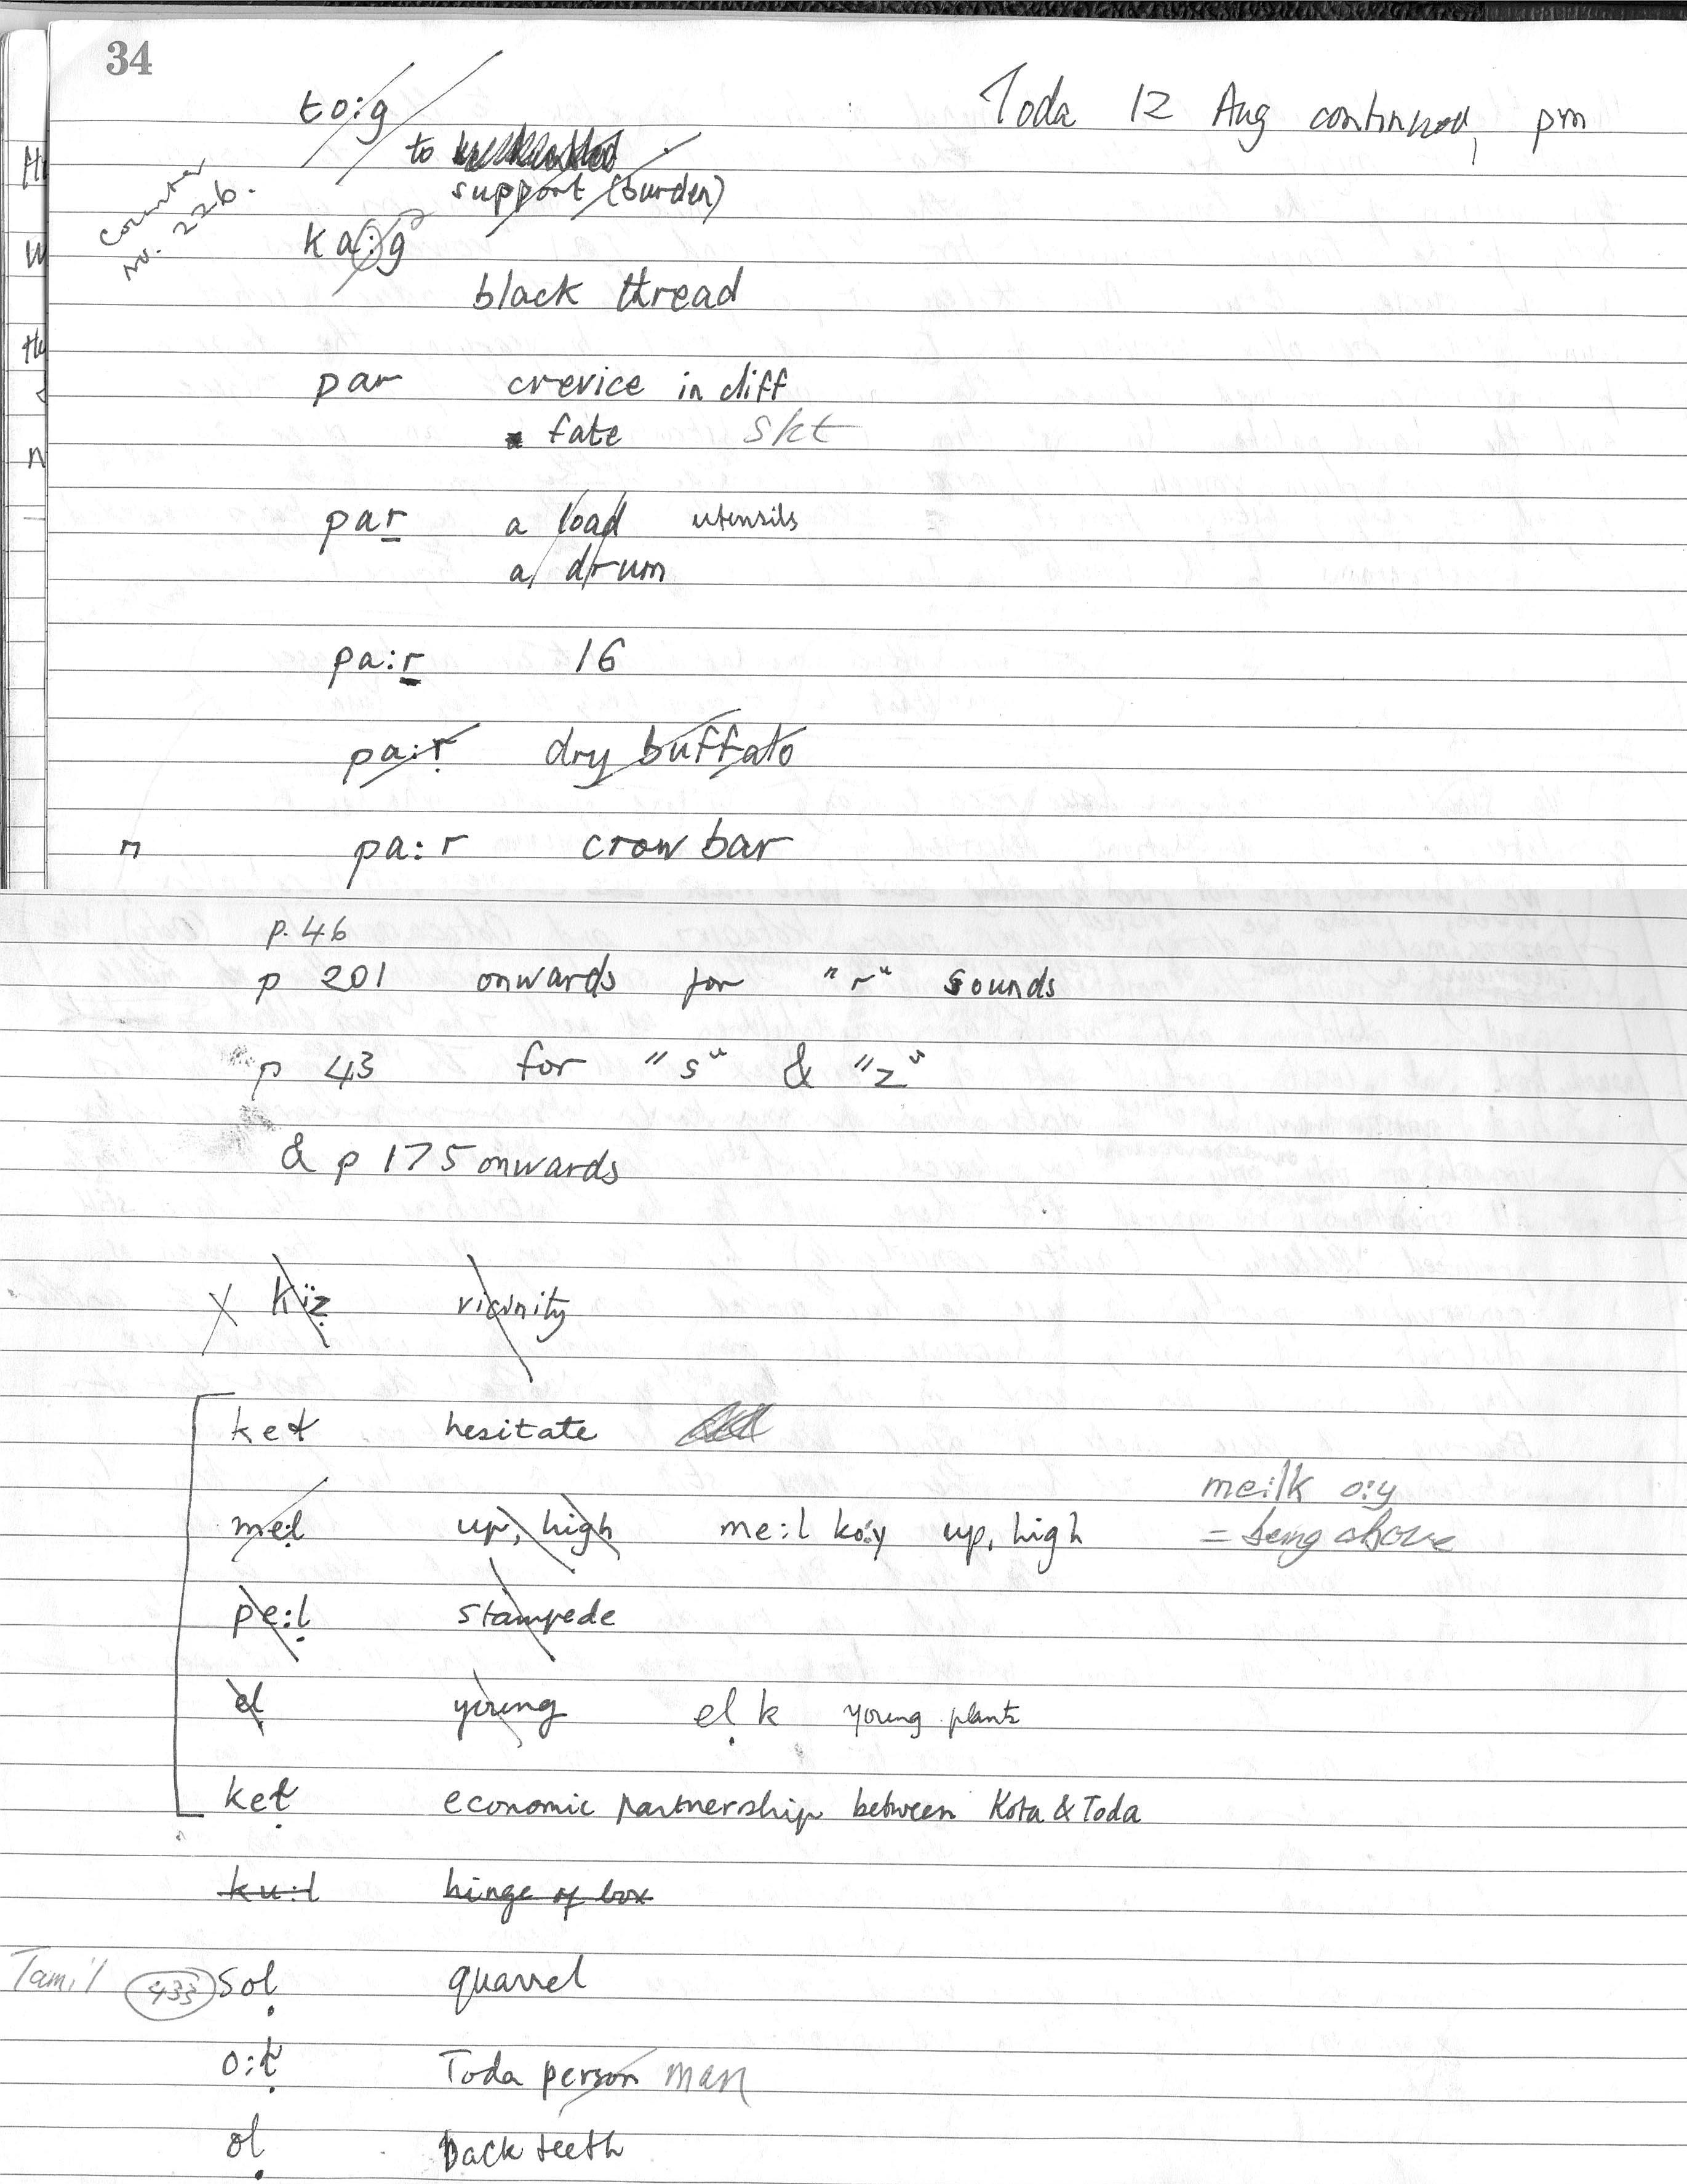 34
Toda 12 Aug continued, pm
to:g
to
support (burden)
Counter
No. 226.
ka:g
black thread
par crevice in cliff
fate skt
pa̲r a load utensils
a drum
pa:r̲ 16
pa:ṛ dry buffalo
n pa:r crow bar
p. 46
p 201 onwards for "r" sounds
p 43 for "s" & "z"
& p 175 onwards
X kïẓ vicinity
hesitate
me:lk o:y
me:l up, high me:l ko:y up, high = being above
pe:ḷ stampede
eḷ young eḷ k young plants
economic partnership between Kota & Toda
ku:l hinge of box
Tamil 433 soḷ quarrel
Toda person man
oḷ back teeth